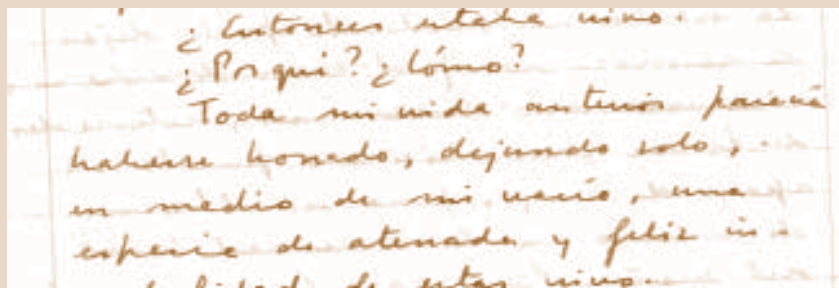 ¿Entonces estaba vivo.
¿Por qué? ¿Cómo?
Toda mi vida anterior parecía
haberse borrado, dejando solo,
en medio de mi vacío, una
especie de aterrada y feliz in-
de estar vivo.